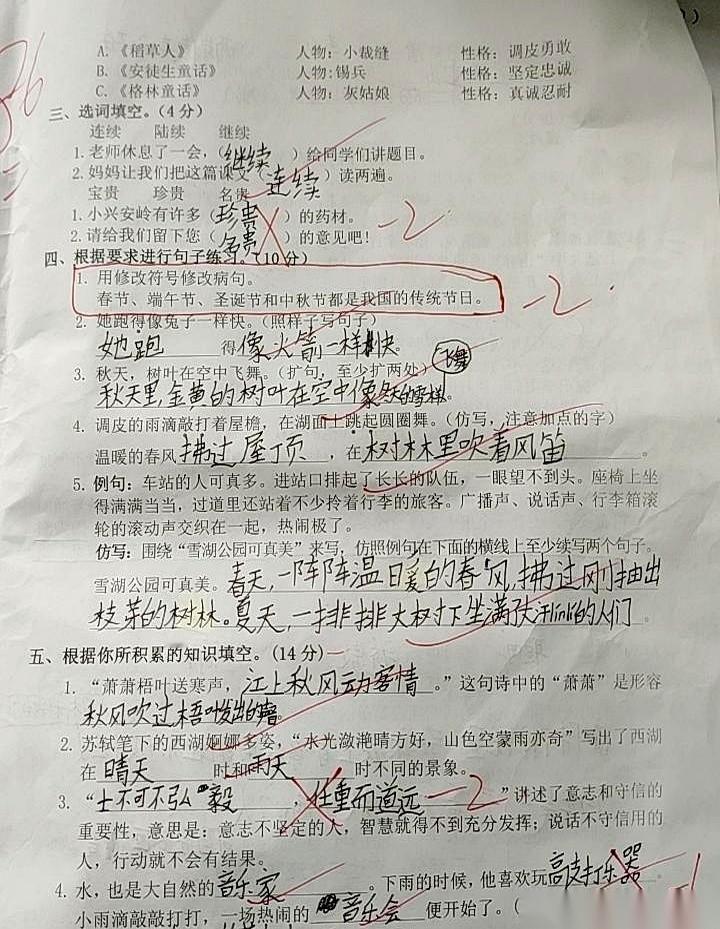 A.《稻草人》 人物：小裁缝 性格：调皮勇敢
B.《安徒生童话》 人物:锡兵 性格：坚定忠诚
C.《格林童话》 人物：灰姑娘 性格：真诚忍耐
三、选词填空。(4分)
连续 陆续 继续
1.老师休息了一会，(继续)给同学们讲题目。
2.妈妈让我们把这篇课文(连续)读两遍。
宝贵 珍贵 名贵
1.小兴安岭有许多(珍贵)的药材。 -2
2.请给我们留下您(免费)的意见吧!
四、根据要求进行句子练习。(10分)
1. 用修改符号修改病句。
春节、端午节、圣诞节和中秋节都是我国的传统节日。 -2
2. 她跑得像兔子一样快。(照样子写句子)
她跑 得 像火箭一样快。
3. 秋天，树叶在空中飞舞。(扩句，至少扩两处) 飞舞
秋天里,金黄的树叶在空中像
4. 调皮的雨滴敲打着屋檐，在湖面上跳起圆圈舞。(仿写，注意加点的字)
温暖的春风 拂过屋顶 ，在 树林里吹着风笛 。
5. 例句：车站的人可真多。进站口排起了长长的队伍，一眼望不到头。座椅上坐
得满满当当，过道里还站着不少拎着行李的旅客。广播声、说话声、行李箱滚
轮的滚动声交织在一起，热闹极了。
仿写：围绕“雪湖公园可真美”来写，仿照例句在下面的横线上至少续写两个句子。
雪湖公园可真美。春天,一阵阵温暖的春风,拂过刚抽出
枝芽的树林。夏天,一排排大树下坐满了汗lin的人们。
五、根据你所积累的知识填空。(14分)
1. “萧萧梧叶送寒声，江上秋风动客情。”这句诗中的“萧萧”是形容
秋风吹过梧叶发出的声音。
2. 苏轼笔下的西湖婀娜多姿，“水光潋滟晴方好，山色空蒙雨亦奇”写出了西湖
在 晴天 时和 雨天 时不同的景象。
3. “士不可不弘毅，任重而道远 -2 ”讲述了意志和守信的
重要性，意思是：意志不坚定的人，智慧就得不到充分发挥；说话不守信用的
人，行动就不会有结果。
4. 水，也是大自然的 音乐家 。下雨的时候，他喜欢玩 敲打乐器 。 -1
小雨滴敲敲打打，一场热闹的 音乐会 便开始了。(